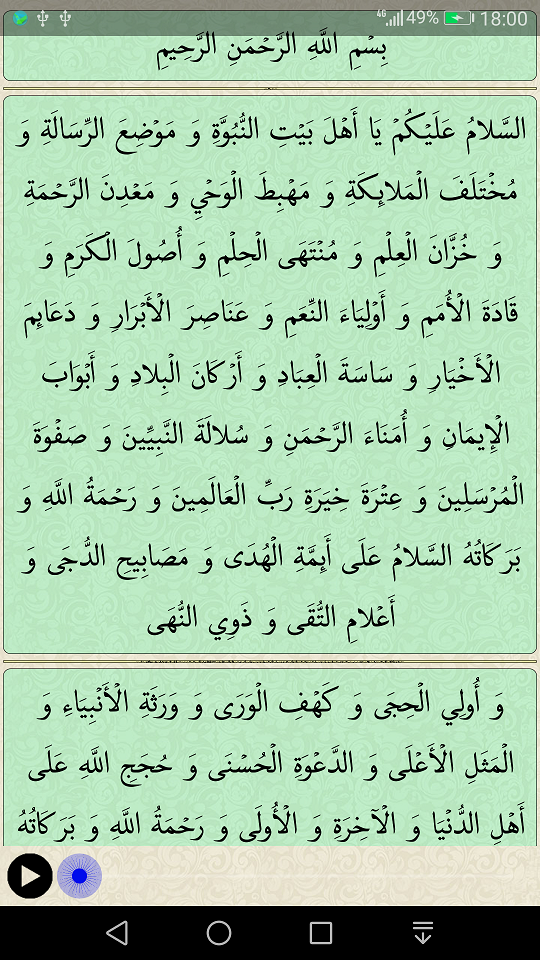 4G 49% 18:00
بِسْمِ اللَّهِ الرَّحْمَنِ الرَّحِيمِ
السَّلامُ عَلَيْكُمْ يَا أَهْلَ بَيْتِ النُّبُوَّةِ وَ مَوْضِعَ الرِّسَالَةِ وَ
مُخْتَلَفَ الْمَلائِكَةِ وَ مَهْبِطَ الْوَحْيِ وَ مَعْدِنَ الرَّحْمَةِ
وَ خُزَّانَ الْعِلْمِ وَ مُنْتَهَى الْحِلْمِ وَ أُصُولَ الْكَرَمِ وَ
قَادَةَ الْأُمَمِ وَ أَوْلِيَاءَ النِّعَمِ وَ عَنَاصِرَ الْأَبْرَارِ وَ دَعَائِمَ
الْأَخْيَارِ وَ سَاسَةَ الْعِبَادِ وَ أَرْكَانَ الْبِلادِ وَ أَبْوَابَ
الْإِيمَانِ وَ أُمَنَاءَ الرَّحْمَنِ وَ سُلالَةَ النَّبِيِّينَ وَ صَفْوَةَ
الْمُرْسَلِينَ وَ عِتْرَةَ خِيَرَةِ رَبِّ الْعَالَمِينَ وَ رَحْمَةُ اللَّهِ وَ
بَرَكَاتُهُ السَّلامُ عَلَى أَئِمَّةِ الْهُدَى وَ مَصَابِيحِ الدُّجَى وَ
أَعْلامِ التُّقَى وَ ذَوِي النُّهَى
وَ أُولِي الْحِجَى وَ كَهْفِ الْوَرَى وَ وَرَثَةِ الْأَنْبِيَاءِ وَ
الْمَثَلِ الْأَعْلَى وَ الدَّعْوَةِ الْحُسْنَى وَ حُجَجِ اللَّهِ عَلَى
أَهْلِ الدُّنْيَا وَ الْآخِرَةِ وَ الْأُولَى وَ رَحْمَةُ اللَّهِ وَ بَرَكَاتُهُ